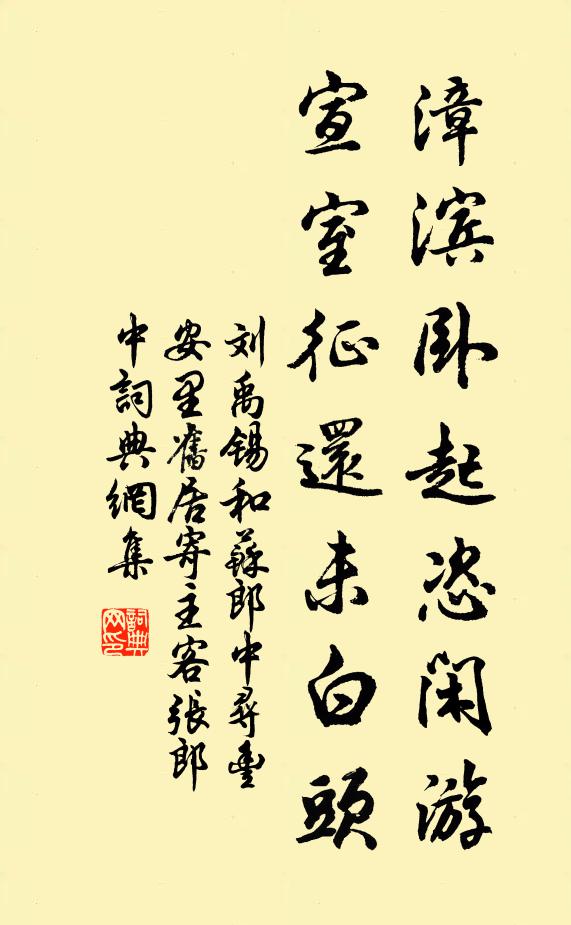 漳滨卧起恣闲游
宣室征還未白頭
刘禹锡和蘇郎中尋豊
安里舊居寄主客張郎
中詞典網集
詞典網印